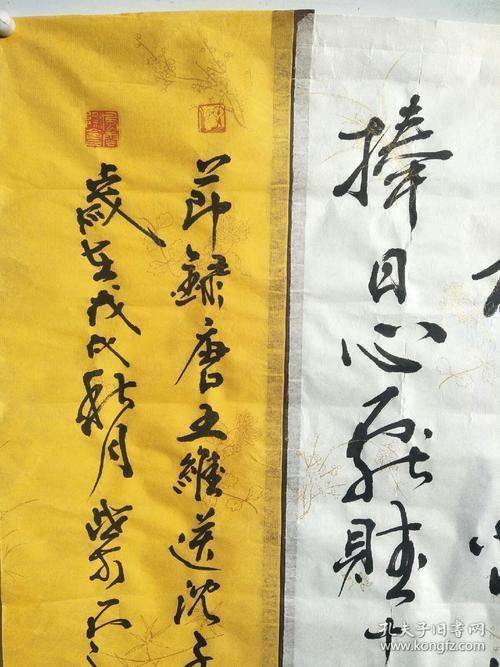 捧日心献賦十
莭録唐王維送沈子
歲在戊戌秋月紫石
孔夫子旧书网
www.kongfz.com